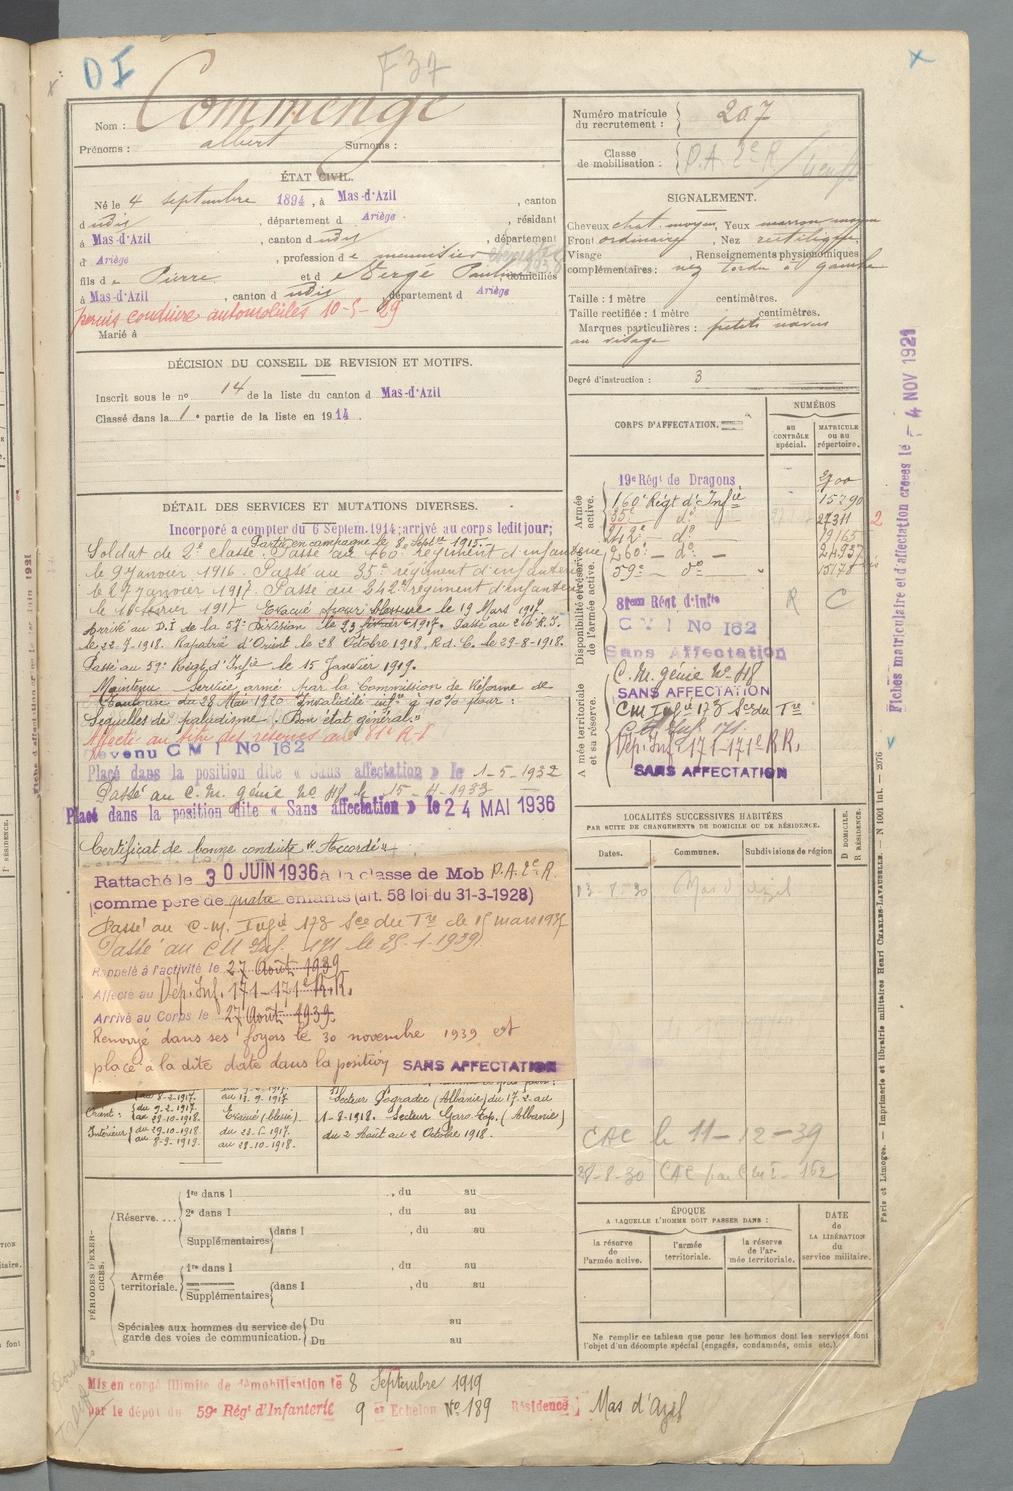 DI
F37
Nom : Commenge
Prénoms : albert Surnoms :
ÉTAT CIVIL.
Né le 4 septembre 1894, à Mas-d'Azil, canton
d udis, département d Ariège, résidant
à Mas-d'Azil, canton d udis, département
d' Ariège, profession de menuisier
fils de Pierre et de Vergé domiciliés
à Mas-d'Azil, canton d udis, département d Ariège
permis conduire automobiles 10-5-29
Marié à
DÉCISION DU CONSEIL DE REVISION ET MOTIFS.
Inscrit sous le no 14 de la liste du canton d Mas-d'Azil
Classé dans la 1e partie de la liste en 1914.
DÉTAIL DES SERVICES ET MUTATIONS DIVERSES.
Incorporé a compter du 6 Septem. 1914; arrivé au corps ledit jour;
Parti en campagne le 8 Septbre 1915.
Soldat de 2e classe. Passé au 160e régiment d'infanterie
le 9 Janvier 1916. Passé au 35e régiment d'infanterie
le 27 Janvier 1917. Passé au 242e régiment d'infanterie
le 16 février 1917 Evacué pour blessure le 19 Mars 1917.
Arrivé au D.I de la 57e Division le 23 1917. Passé au 260 R.I.
le 22-7-1918. Rapatrié d'Orient le 28 Octobre 1918, R.d.C. le 29-8-1918.
Passé au 59e Régt d'Infie le 15 Janvier 1919.
Maintenu service armé par la Commission de Réforme de
Toulouse du 28 Mai 1920 Invalidité infre à 10% pour :
"Séquelles de paludisme. Bon état général."
Affecté au titre des réserves au 81e R.I
Devenu CMI No 162
Placé dans la position dite « Sans affectation » le 1-5-1932
Passé au C.M. génie No 48 le 15-4-1933
Placé dans la position dite « Sans affectation » le 24 MAI 1936
Certificat de bonne conduite "Accordé"
Rattaché le 30 JUIN 1936 à la classe de Mob P.A. 2e R.
(comme père de quatre enfants (art. 58 loi du 31-3-1928)
Passé au C.M. Infie 173 Sce du Tre le 15 mars 1937
Passé au CM Inf. 171 le 25-1-1939.
Rappelé à l'activité le 27 Août 1939
Affecté au Dép. Inf. 171-171e R.R.
Arrivé au Corps le 27 Août 1939.
Renvoyé dans ses foyers le 30 novembre 1939 et
placé à la dite date dans la position SANS AFFECTATION
au 8-2-1917.
Orient : du 9-2-1917. au 28-10-1918.
Intérieur du 29-10-1918. au 8-9-1919.
au 11-9-1917.
Evacué (blessé)
du 23-5-1917.
au 28-10-1918.
Secteur Pogradec (Albanie) du 17-2 au
1-8-1918. Secteur Gora-Top. (Albanie)
du 2 Août au 2 Octobre 1918.
PÉRIODES D'EXERCICES.
Réserve....
1re dans l , du au
2e dans l , du au
Supplémentaires dans l , du au
Armée territoriale.
1re dans l , du au
Supplémentaires dans l , du au
Spéciales aux hommes du service de garde des voies de communication.
Du au
Du au
Mis en congé illimité de démobilisation le 8 Septembre 1919
par le dépôt du 59e Régt d'Infanterie 9 e Echelon No 189 Résidence Mas d'Azil
Numéro matricule du recrutement : 207
Classe de mobilisation : P.A. 2e R
SIGNALEMENT.
Cheveux chat. moyen, Yeux marron moyen
Front ordinaire, Nez rectiligne
Visage , Renseignements physionomiques
complémentaires : nez tordu à gauche
Taille : 1 mètre centimètres.
Taille rectifiée : 1 mètre centimètres.
Marques particulières : petits naevus
au visage
Degré d'instruction : 3
CORPS D'AFFECTATION.
NUMÉROS
au contrôle spécial.
MATRICULE ou au répertoire.
Armée active.
19e Régt de Dragons
160e Régt d'Infie 15790
35e do 27311
242e - do 19165
Disponibilité et réserve de l'armée active.
260e - do -
59e - do
81me Régt d'Infie R C
CMI No 162
Sans Affectation
Armée territoriale et sa réserve.
C.M. génie No 48
SANS AFFECTATION
CM Infie 173 Sce du Tre
CM Inf. 171.
Dép. Inf. 171-171e R.R.
SANS AFFECTATION
LOCALITÉS SUCCESSIVES HABITÉES
PAR SUITE DE CHANGEMENTS DE DOMICILE OU DE RÉSIDENCE.
Dates. Communes. Subdivisions de région
D DOMICILE. R RÉSIDENCE.
13-8-30 Mas d'Azil
CAC le 11-12-39
28-8-30 CAC par CMI 162
ÉPOQUE
A LAQUELLE L'HOMME DOIT PASSER DANS :
la réserve de l'armée active.
l'armée territoriale.
la réserve de l'armée territoriale.
DATE de LA LIBÉRATION du service militaire.
Ne remplir ce tableau que pour les hommes dont les services font
l'objet d'un décompte spécial (engagés, condamnés, omis etc.).
Fiches matriculaire et d'affectation créées le 4 NOV 1921
Paris et Limoges. — Imprimerie et librairie militaires Henri CHARLES-LAVAUZELLE. — N 1001 int. — 2076